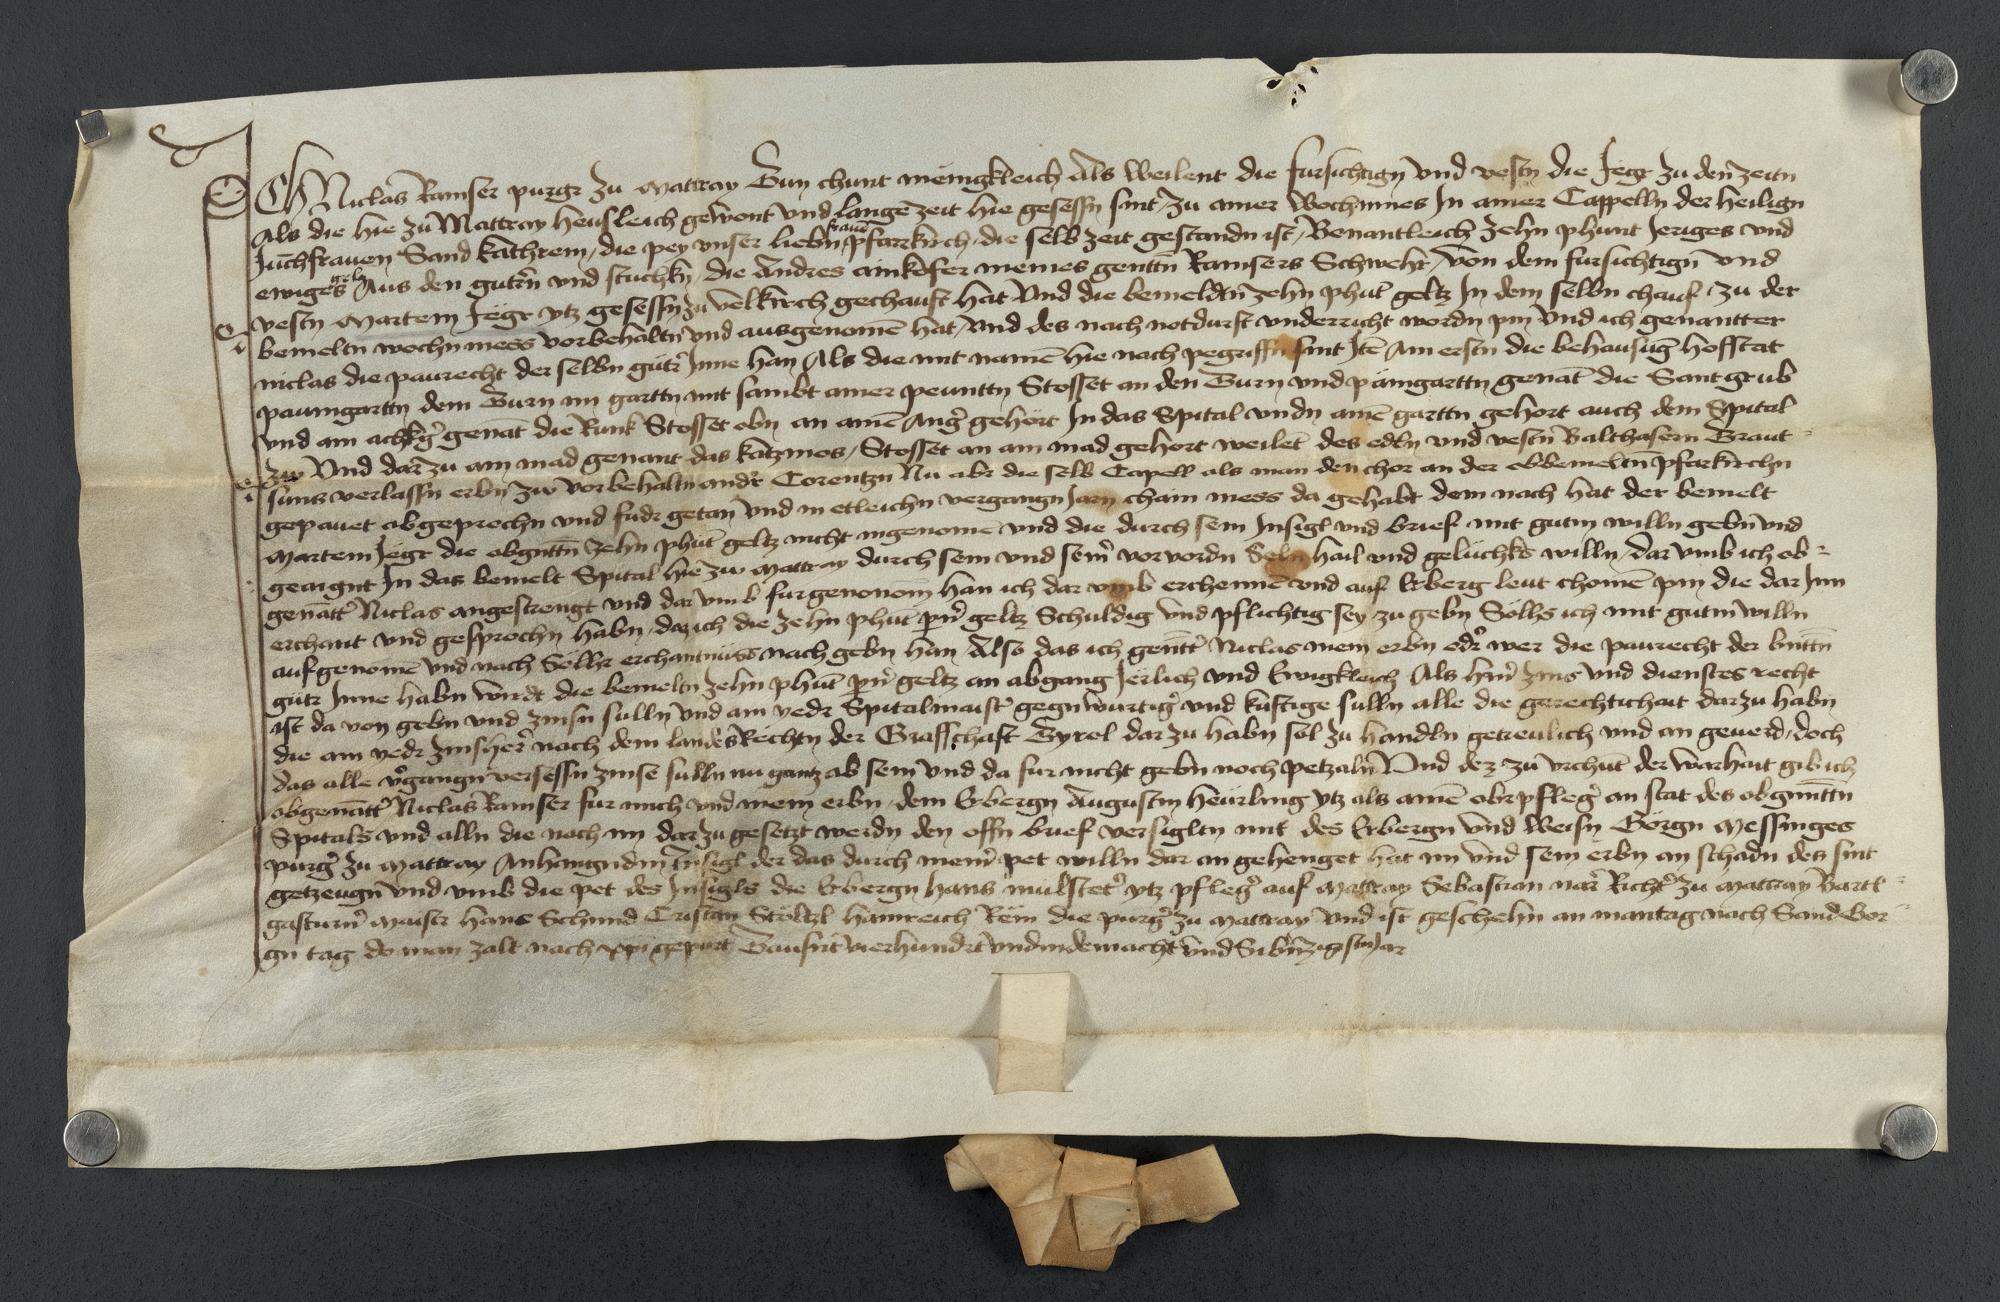 ICh Niclas Ramser purgr zu Mattray Tun chunt menigkleich Als Weilent die fursichtign und vestn die Jëgr zu den zeitn
Als die hie zu Mattray heusleich gewont und lange zeit hie gesessn sint / zu ainer Wochnmes In ainer Cappelln der heilign
Juchfrauen Sand kathrein / die pey unser liebn frauē pfarrkirch / die selb zeit gestandn ist / Benantleich zehn phunt Jeriges und
ewiges geltz Aus den gutrn und stuckn / die Andres ainkofer meines genttn Ramsers Schwehr / von dem fursichtign und
vestn Martein Jëgr ytz gesessn zu velkirch gechauft hat Und die bemeldtn zehn phūt geltz In dem selbn chauf / zu der
bemeltn wochn mess vorbehaltn und ausgenomē hat / und des nach notdurft underricht wordn pin Und ich genantter
niclas die paurecht der selbn gütr Inne han Als die mit namē hie nach pegriffn sint Itē Am erstn die behausūg hofstat
paumgarttn dem Turn im garttn mit sambt ainer peunttn Stosset an den Turn und pämgarttn genāt die Santgrub
und ain ackhgr genāt die Runk Stosset obn an ainē Angr gehört In das Spital undn ainē garttn gehort auch dem Spital
zw Und darzu ain mad genant das katzmos / Stosset an ain mad gehort weilēt des edln und vestn Balthasern Traut-
suns verlassn erbn zw vorbehaltn andr Corentzn Nu abr die selb Capell als man den chor an der obbemeltn Pfarkirchn
gepauet abgeprochn und fudr getan und in etleichn vergangn Jarn chain mess da gehabt dem nach hat der bemelt
Martein Jëgr die obgnttn zehn phūt geltz nicht ingenomē und die durch sein Insigl und brief mit gutm willn gebn und
geaignt In das bemelt Spital hie zw Mattray durch sein und seinr vorvordn Seln hail und gelückhs willn / dar umb ich ob-
genāttr Niclas angestrengt und dar umb furgenomm han ich dar umb erchennē und auf Erberg leut chomē pin die dar Inn
erchant und gesprochn habn / daz ich die zehn phūt pnr geltz Schuldig und pflichtig sey / zu gebn Sölhs ich mit gutm willn
aufgenomē und nach Söllhr erchantnüss nach gebn han Also das ich genttr Niclas mein erbn edr wer die paurecht der bnttn
gütr Inne habn wirdt die bemeltn zehn phūt pnr geltz an abgang Jerlich und Ewigkleich Als hrn zins und dienstes recht
ist da von gebn und zinsn sulln und ain yedr Spitalmaistr gegnwürtigr und kuftige sulln alle die gerechtichait darzu habn
die ain yedr zinsherr nach dem landesRechtn der Graffschaft Tyrol dar zu habn sol zu handln getreulich und an geuerd / doch
das alle vrgangn versessn zinse sulln nu gantz ab sein und da fur nicht gebn noch petzaln Und dez zu urchūt der warhait gib ich
obgenāttr Niclas Ramser fur mich und mein erbn / dem Erbergn Augustin heürling ytz als ainē obrpflegr an stat des obgnnttn
Spitals und alln die noch im darzu gesetzt werdn den offn brief versigltn mit des Erbergn und Weisn Görgn Messinges
purgr zu Mattray Anhangndm Insigl der das durch meinr pet willn dar an gehenget hat im und sein erbn an schadn des sint
getzeugn und umb die pet des Insigls die Erbergn hans mülstetr ytz pflegr auf Mattray Sebastian narr Richtr zu Mattray Bartl-
gasturnr maistr hans Schmid Cristan Stöltzl hainreich Rëm die purgr zu Mattray Und ist geschehn an mantag nach Sand Gor-
gn tag do man zalt nach xpi gepurt Tausnt vierhundrt und indem acht und Sibnzigistn Jar